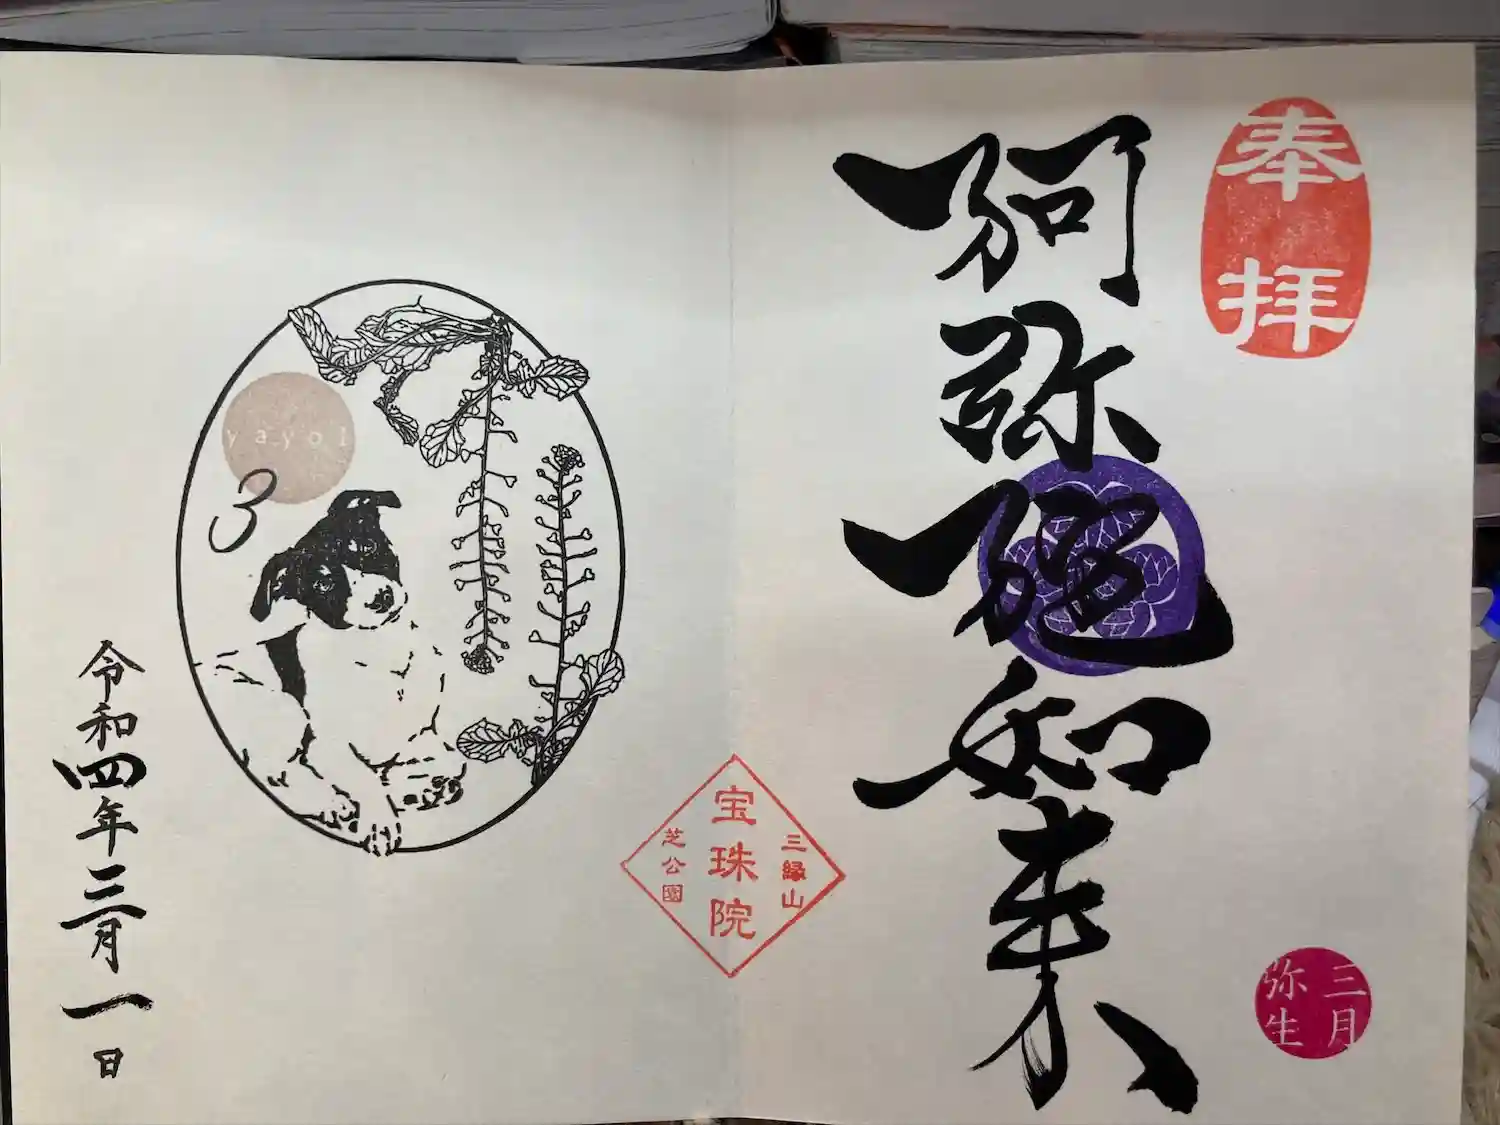 奉拝
阿弥陀如来
三月
弥生
三縁山
宝珠院
芝公園
yayoi
3
令和四年三月一日